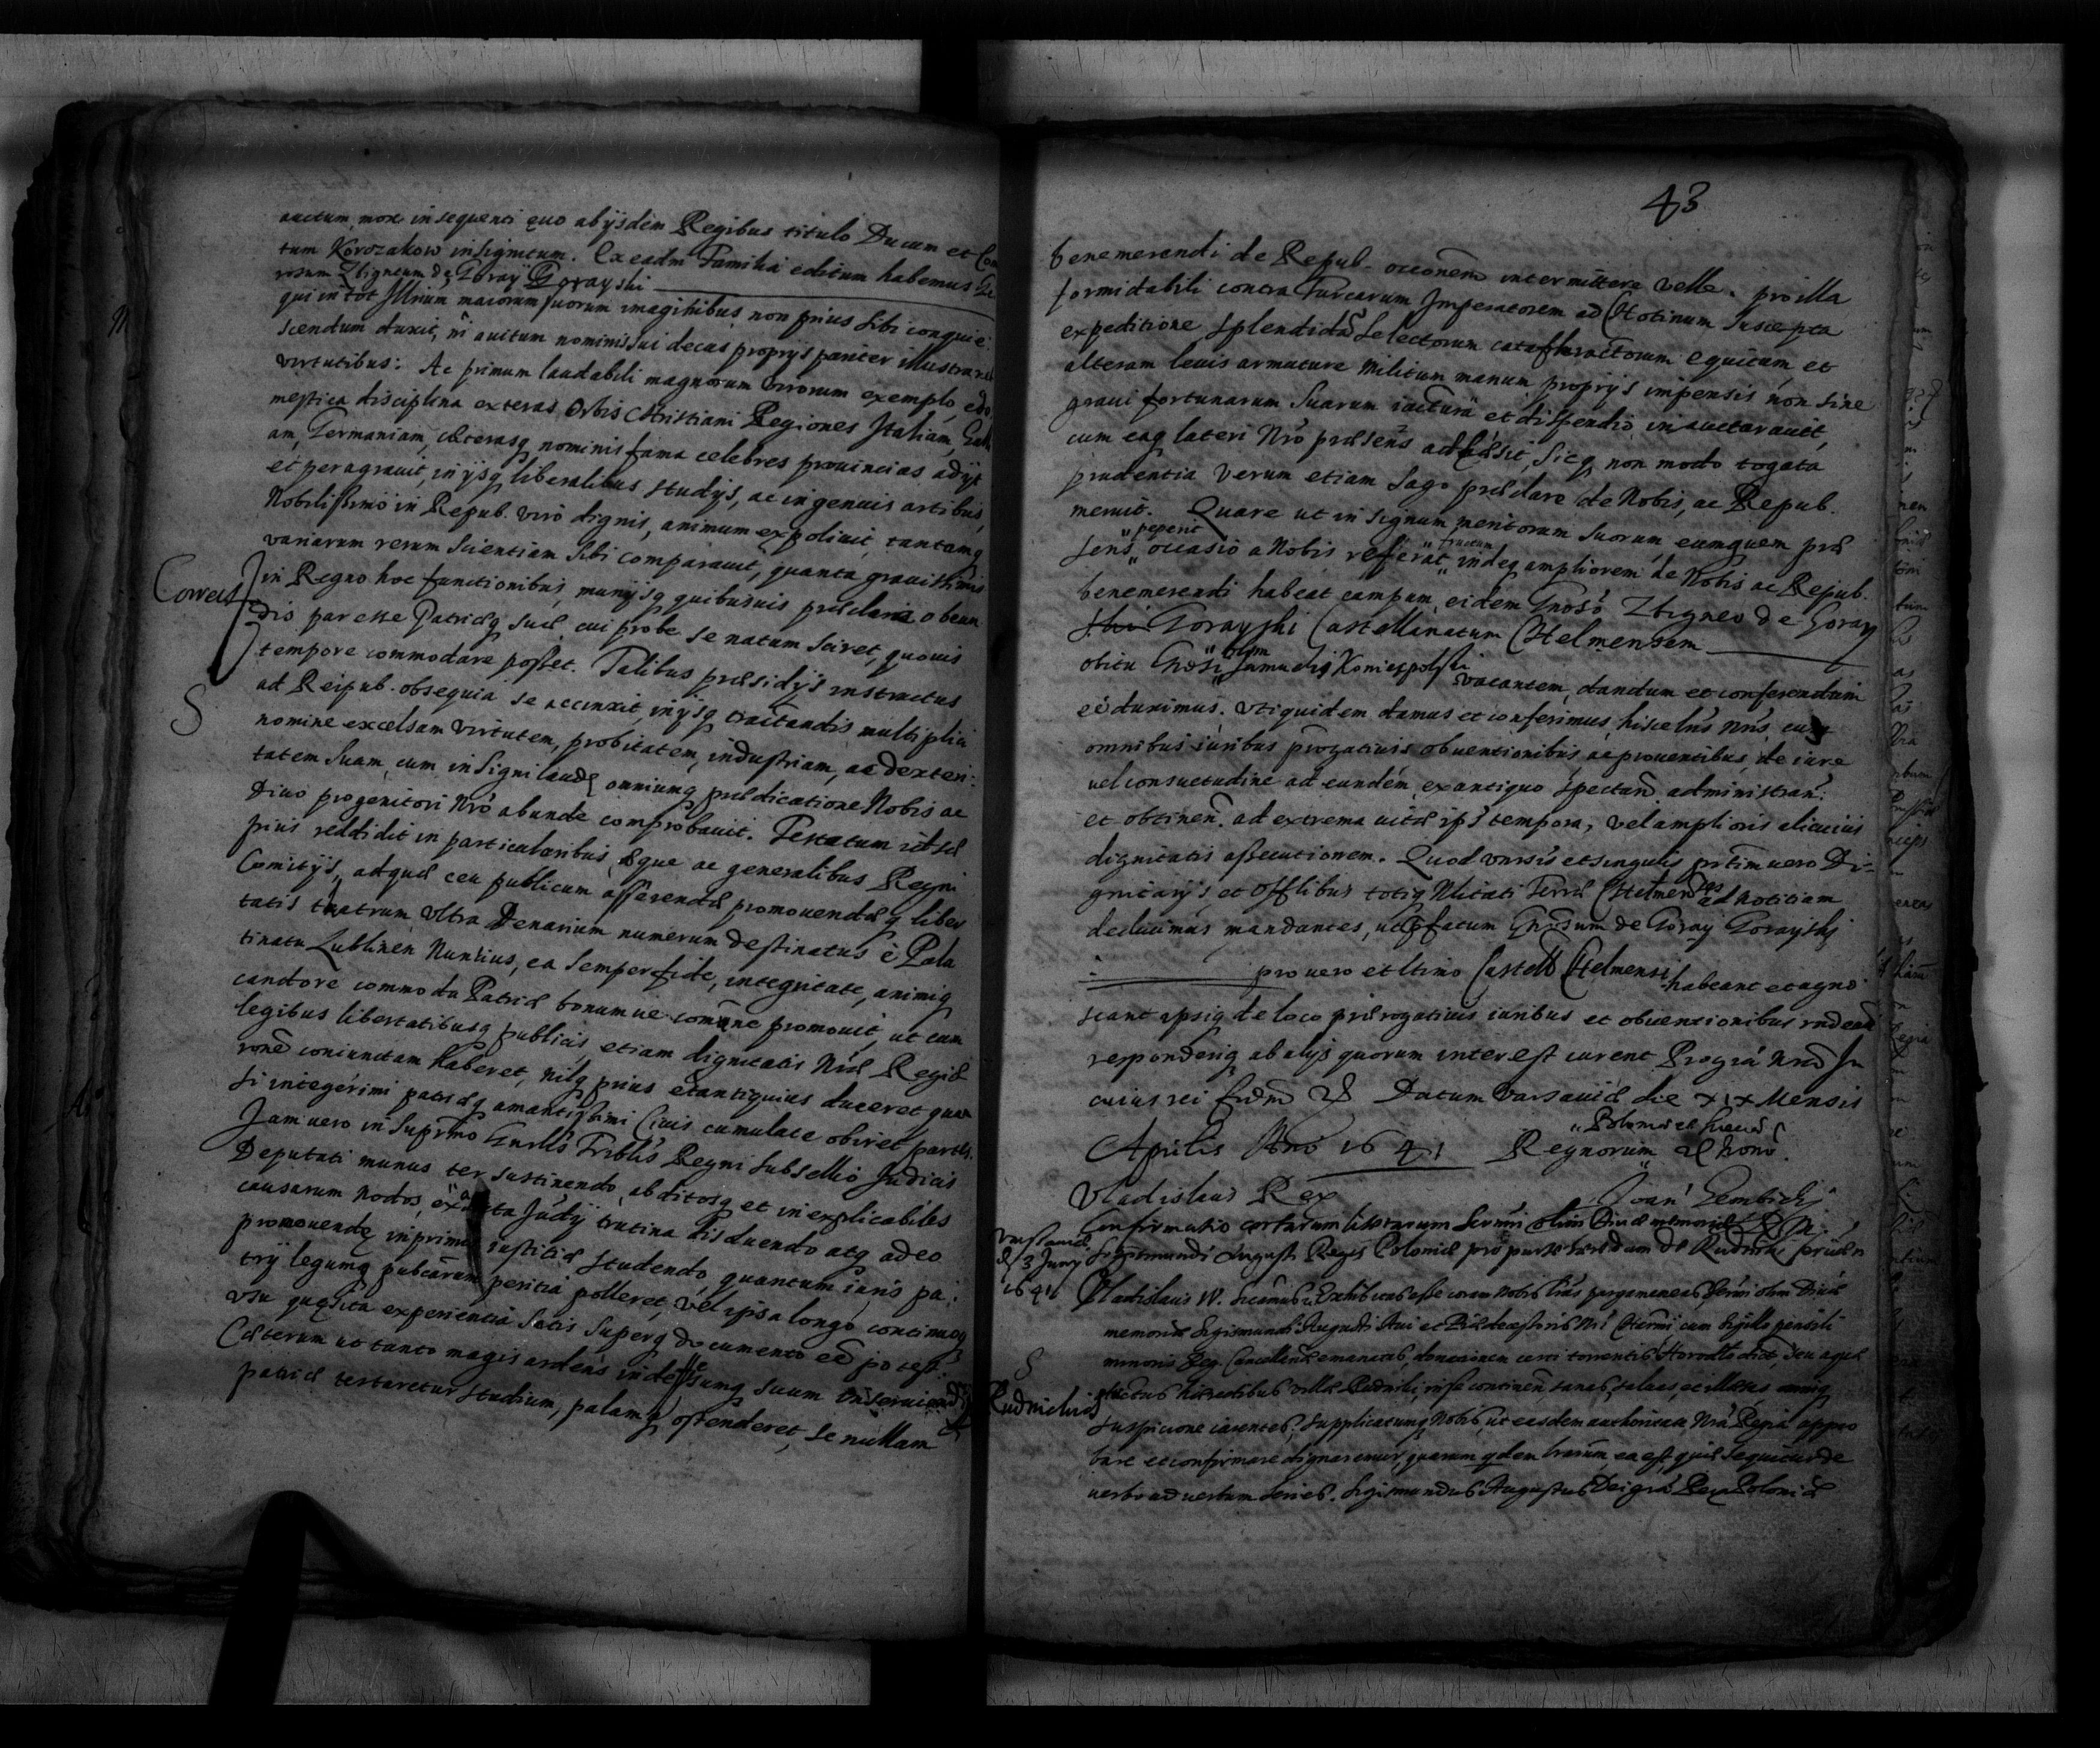 auctum, mox insequenti quo ab ijsdem Regibus titulo Ducum et Com
tum Korczakow insignitum. Ex eadm Familia editum habemus Ge
rosum Zbigneum de Goray Gorayski
qui in tot Illrium maiorum suorum imaginibus non prius sibi conquie:
scendum duxit, ni auitum nominis sui decus proprijs pariter illustraret
virtutibus: Ac primum laudabili magnorum virorum exemplo, e do
mestica disciplina exteras Orbis Christiani Regiones Italiam, Galli
am, Germaniam, cæterasq nominis fama celebres prouincias adijt
et peragrauit, in ijsq liberalibus studijs, ac ingenuis artibus,
Nobilissimo in Repub. viro dignis, animum expoliuit, tantamq
variarum rerum scientiam sibi comparauit, quanta grauissimis
in Regno hoc functionibus, munijsq quibusuis præclare obeun
dis par esse Patriæq suæ, cui probe se natum sciret, quouis
tempore commodare posset. Talibus præsidijs instructus
ad Reipub. obsequia se accinxit, in ijsq tractandis multiplici
nomine excelsam virtutem, probitatem, industriam, ac dexteri:
tatem suam, cum insigni laude omniumq prædicatione Nobis ac
Diuo progenitori Nro abunde comprobauit. Testatum id sæ
pius reddidit in particularibus æque ac generalibus Regni
Comitijs, ad quæ ceu publicum asserendæ promouendæq liber
tatis theatrum vltra Denarium numerum destinatus è Pala
tinatu Lublinen Nuntius, ea semper fide, integritate, animiq
candore commoda Patriæ bonumue comune promouit, ut cum
legibus libertatibusq publicis, etiam dignitatis Nræ Regiæ
ronẽ coniunctam haberet, nilq prius et antiquius duceret quam
si integerimi patriæq amantissimi Ciuis cumulate obiret partes.
Iam uero in Supremo Gnrlis Triblis Regni subsellio Iudicis
Deputati munus ter sustinendo, abditosq et inexplicabiles
causarum nodos, exacta Iudij trutina disluendo atq adeo
promouendę inprimis iustitiæ studendo, quantum iuris pa:
trij legumq publicarum peritia polleret, vel ipsa longo continuoq
vsu quæsita experientia satis superq documento eẽ potest.
Cæterum ut tanto magis ardens indefessumq suum inseruiendi
patriæ testaretur studium, palamq ostenderet, se nullam
Correct
S
43
benemerendi de Repub. occonem intermittere velle. pro illa
formidabili contra Turcarum Imperatorem ad Chotinum suscepta
expeditione splendidã selectorum cataphractorum equitum et
alteram leuis armature militum manum proprijs impensis non sine
graui fortunarum suarum iactura et dispendio in auctarauit,
cum eaq lateri Nro præsens adhæsit, sicq non modo togata
prudentia verum etiam sago præclare de Nobis, ac Repub.
meruit. Quare ut in signum meritorum suorum, eumquem præ
sens peperit occasio a Nobis referat fructum, indeq ampliorem de Nobis ac Repub.
benemerendi habeat campum, eidem Gnoso Zbigneo de Goray
Gorayski Castellanatum Chelmensem
obitu Gnosi olim Samuelis Koniecpolski vacantem, dandum et conferendum
eẽ duximus. vti quidem damus et conferimus hisce lris Nris, cum
omnibus iuribus prrogatiuis obuentionibus, ac prouentibus, de iure
uel consuetudine ad eundem, ex antiquo spectan. administran:
et obtinen. ad extrema uitæ ipsi tempora, vel amplioris alicuius
dignitatis assecutionem. Quod vniuersis et singulis prtim uero Di-
gnitarijs, et Offlibus totiq Nlitati Terræ Chelmen ad notitiam
deducimus mandantes, ut pfatum Gnosum de Goray Gorayski
pro uero et ltimo Castello Chelmensi habeant et agno
scant ipsiq de loco prærogatiuis iuribus et obuentionibus rndeant
responderiq ab alijs quorum interest curent Pro gra Nra In
cuius rei fidem &c Datum Varsauiæ die xix Mensis
Aprilis Ano 1641 Regnorum Poloniæ et Sueciæ
Vladislaus Rex
Varsauiæ
d 3 Juny
1641
Confirmatio certarum literarum Sermi olim Diuæ memoriæ
Sigismundi Augusti Regis Poloniæ pro parte hæredum de Rudniki
Vladislaus IV. Exhibitas esse coram Nobis lras pargameneas Sermi olim Diuæ
memoriæ Sigismundi Augusti Aui et Prædecessoris Nri Charmi cum sigillo pensili
minoris Reg. Cancellariæ emanatas, donationem certi torrentis
S
Rudnickis
hæredibus villæ Rudniki, in se continen, sanas, saluas, et illæsas omniq
suspicione carentes; supplicatumq Nobis, ut easdem authoritate Nra Regia appro
bare et confirmare dignaremur, quarum qdem lrarum, ea est quæ sequitur de
uerbo ad uerbum series. Sigismundus Augustus Dei gra Rex Poloniæ